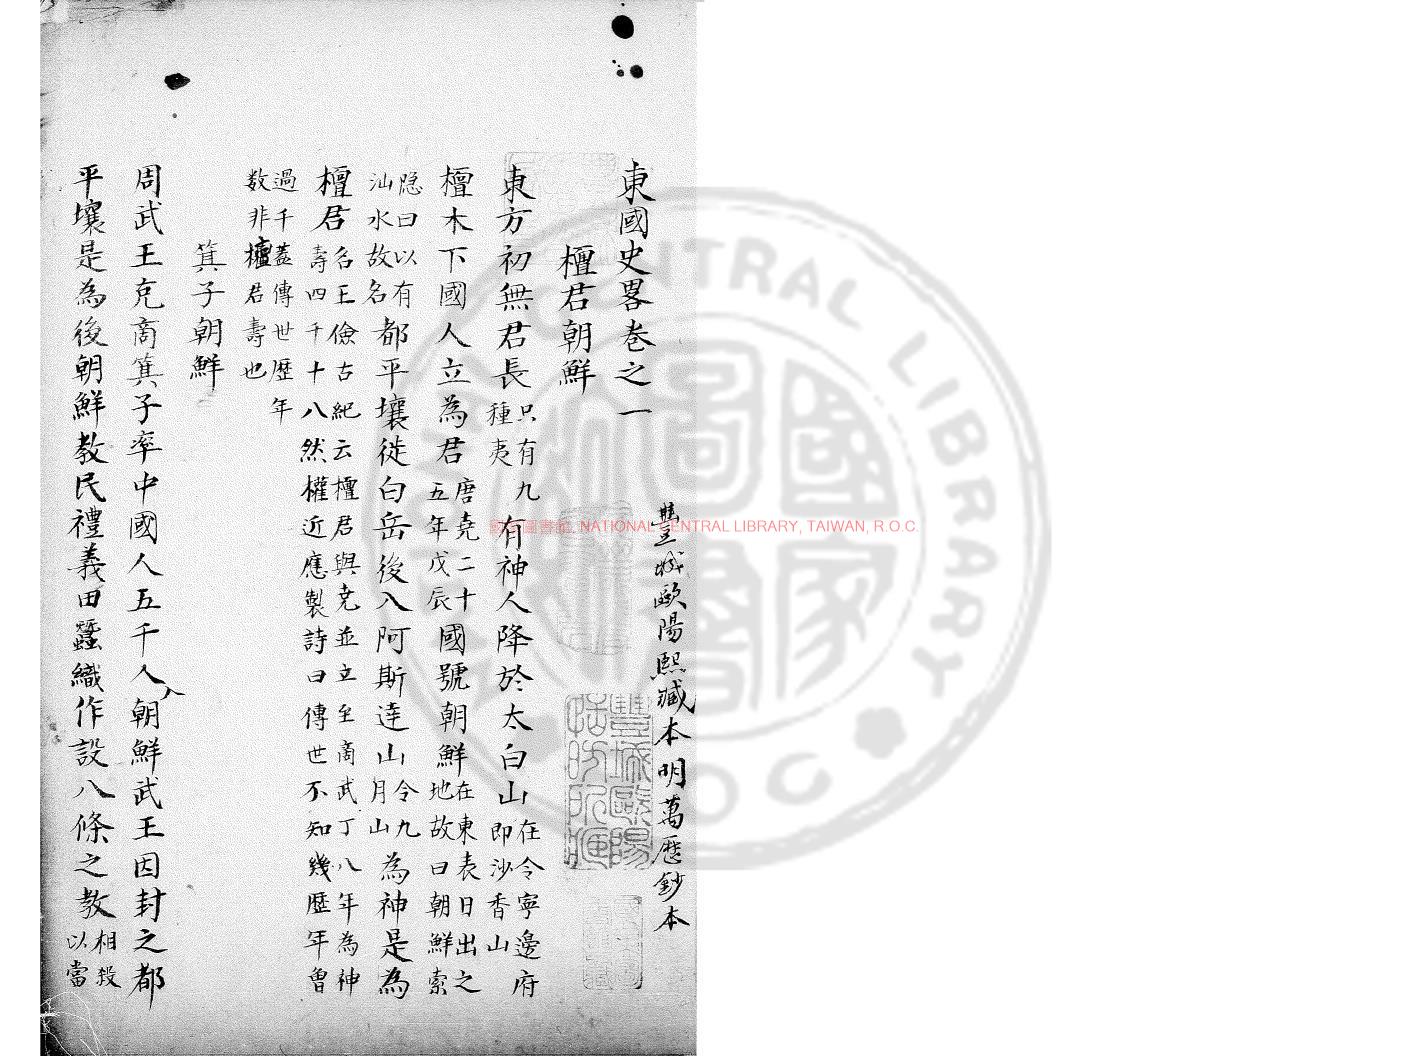 東國史畧卷之一
豐城歐陽熙藏本明萬歷鈔本
檀君朝鮮
東方初無君長只有九種夷有神人降於太白山在今寧邊府即沙香山
檀木下國人立為君唐堯二十五年戊辰國號朝鮮在東表日出之地故曰朝鮮索
隐曰以有汕水故名都平壤徙白岳後入阿斯達山今九月山為神是為
檀君名王儉古紀云檀君與堯並立至商武丁八年為神壽四千十八然權近應製詩曰傳世不知幾歷年曾
過千蓋傳世歷年数非檀君壽也
箕子朝鮮
周武王克商箕子率中國人五千人入朝鮮武王因封之都
平壤是為後朝鮮教民禮義田蠶織作設八條之教相殺以當
國家圖書館 NATIONAL CENTRAL LIBRARY, TAIWAN, R.O.C.